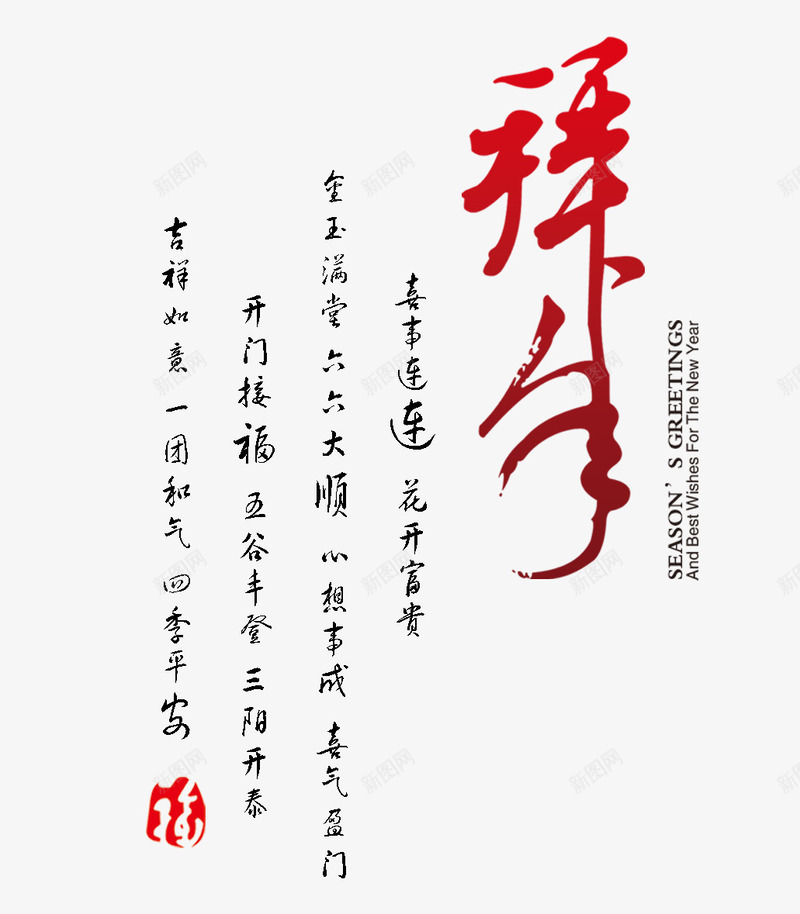 拜年
SEASON'S GREETINGS
And Best Wishes For The New Year
喜事连连 花开富贵
金玉满堂 六六大顺 心想事成 喜气盈门
开门接福 五谷丰登 三阳开泰
吉祥如意 一团和气 四季平安
新图网